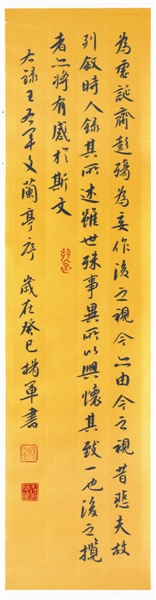 為虛誕齊彭殤為妄作後之視今亦由今之視昔悲夫故
列敘時人錄其所述雖世殊事異所以興懷其致一也後之攬
者亦將有感於斯文
右錄王右軍文蘭亭序 歲在癸巳 楊軍書